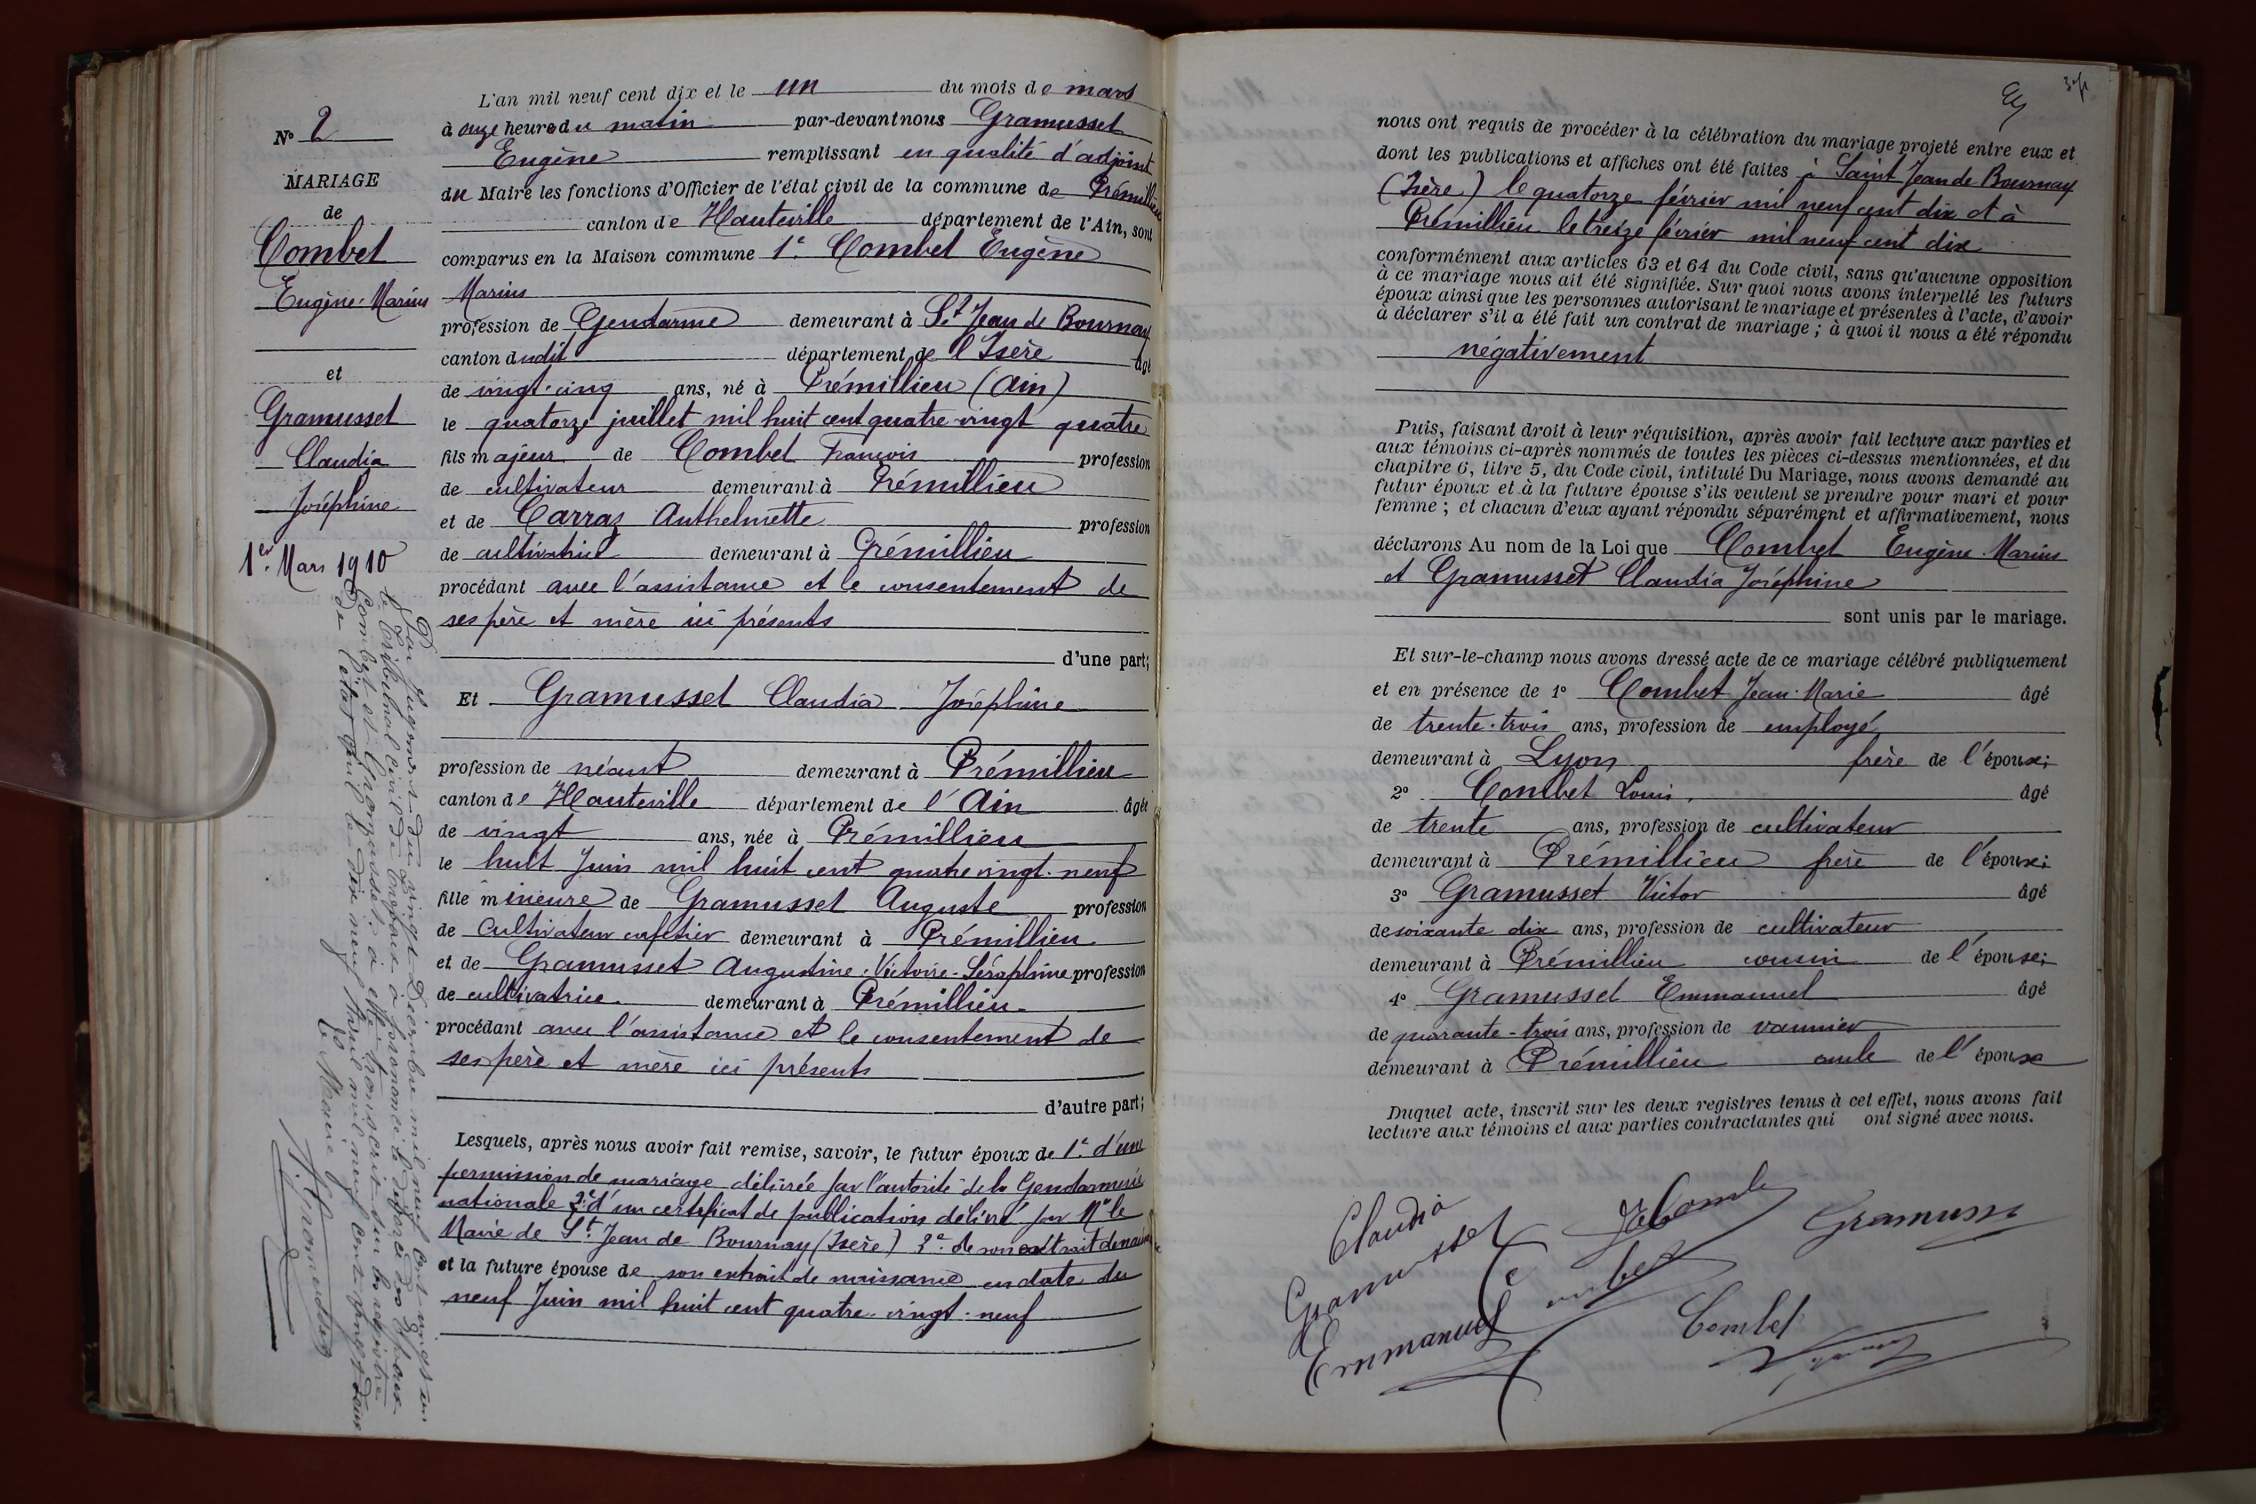 N° 2
MARIAGE
de
Combet
Eugène-Marius
et
Gramusset
Claudia
Joséphine
1er Mars 1910
Par jugement du vingt Décembre mil neuf cent vingt un
le Tribunal Civil de a prononcé le divorce des époux
Combet et Gramusset, a été transcrit sur les registres
de l'état civil le dix neuf Avril mil neuf cent vingt deux
Le Maire
L'an mil neuf cent dix et le un du mois de mars
à onze heures du matin par-devant nous Gramusset
Eugène remplissant en qualité d'adjoint
du Maire les fonctions d'Officier de l'état civil de la commune de Prémillieu
canton de Hauteville département de l'Ain, sont
comparus en la Maison commune 1° Combet Eugène
Marius
profession de Gendarme demeurant à St Jean de Bournay
canton dudit département de l'Isère âgé
de vingt-cinq ans, né à Prémillieu (Ain)
le quatorze juillet mil huit cent quatre-vingt quatre
fils majeur de Combet François profession
de cultivateur demeurant à Prémillieu
et de Carraz Anthelmette profession
de cultivatrice demeurant à Prémillieu
procédant avec l'assistance et le consentement de
ses père et mère ici présents
d'une part;
Et Gramusset Claudia Joséphine
profession de néant demeurant à Prémillieu
canton de Hauteville département de l'Ain âgée
de vingt ans, née à Prémillieu
le huit Juin mil huit cent quatre vingt-neuf
fille mineure de Gramusset Auguste profession
de Cultivateur cafetier demeurant à Prémillieu
et de Gramusset Augustine-Victoire-Séraphine profession
de cultivatrice demeurant à Prémillieu
procédant avec l'assistance et le consentement de
ses père et mère ici présents
d'autre part;
Lesquels, après nous avoir fait remise, savoir, le futur époux de 1° d'une
permission de mariage délivrée par l'autorité de la Gendarmerie
nationale 2° d'un certificat de publication délivré par Mr le
Maire de St Jean de Bournay (Isère) 3° de son extrait de naissance
et la future épouse de son extrait de naissance en date du
neuf Juin mil huit cent quatre-vingt-neuf
nous ont requis de procéder à la célébration du mariage projeté entre eux et
dont les publications et affiches ont été faites à Saint Jean de Bournay
(Isère) le quatorze février mil neuf cent dix et à
Prémillieu le treize février mil neuf cent dix
conformément aux articles 63 et 64 du Code civil, sans qu'aucune opposition
à ce mariage nous ait été signifiée. Sur quoi nous avons interpellé les futurs
époux ainsi que les personnes autorisant le mariage et présentes à l'acte, d'avoir
à déclarer s'il a été fait un contrat de mariage ; à quoi il nous a été répondu
négativement
Puis, faisant droit à leur réquisition, après avoir fait lecture aux parties et
aux témoins ci-après nommés de toutes les pièces ci-dessus mentionnées, et du
chapitre 6, titre 5, du Code civil, intitulé Du Mariage, nous avons demandé au
futur époux et à la future épouse s'ils veulent se prendre pour mari et pour
femme ; et chacun d'eux ayant répondu séparément et affirmativement, nous
déclarons Au nom de la Loi que Combet Eugène-Marius
et Gramusset Claudia Joséphine
sont unis par le mariage.
Et sur-le-champ nous avons dressé acte de ce mariage célébré publiquement
et en présence de 1° Combet Jean-Marie âgé
de trente-trois ans, profession de employé
demeurant à Lyon frère de l'époux;
2° Combet Louis, âgé
de trente ans, profession de cultivateur
demeurant à Prémillieu frère de l'époux;
3° Gramusset Victor âgé
de soixante dix ans, profession de cultivateur
demeurant à Prémillieu cousin de l'épouse;
4° Gramusset Emmanuel âgé
de quarante-trois ans, profession de vannier
demeurant à Prémillieu oncle de l'épouse
Duquel acte, inscrit sur les deux registres tenus à cet effet, nous avons fait
lecture aux témoins et aux parties contractantes qui ont signé avec nous.
Claudia
Gramusset
Gramuss
Emmanuel
Combet